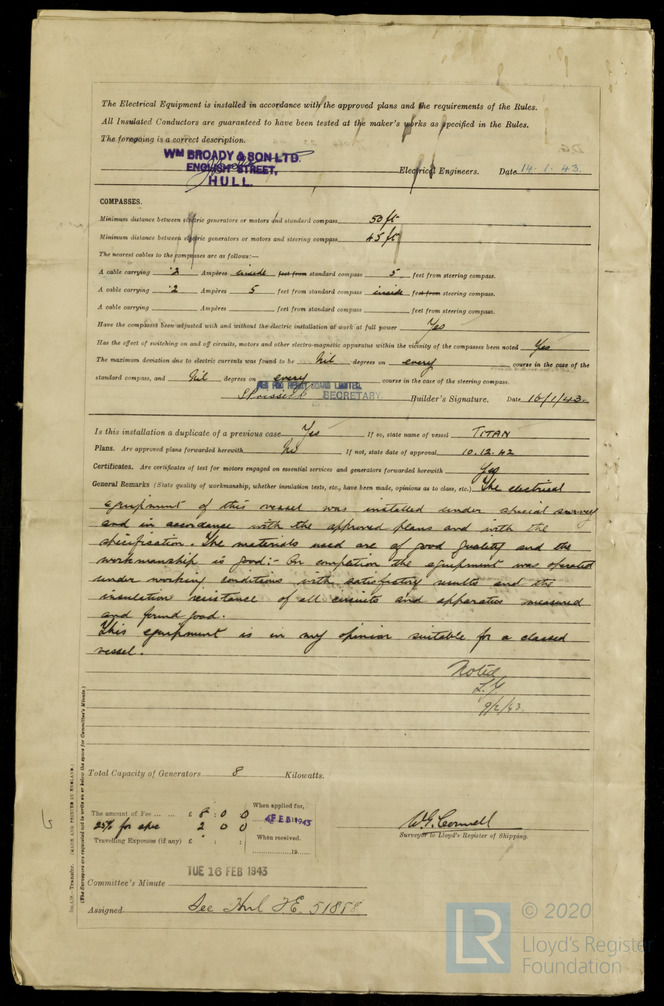 The Electrical Equipment is installed in accordance with the approved plans and the requirements of the Rules.
All Insulated Conductors are guaranteed to have been tested at the maker's works as specified in the Rules.
The foregoing is a correct description.
WM BROADY & SON LTD.
ENGLISH STREET,
HULL.
Electrical Engineers. Date 14.1.43.
COMPASSES.
Minimum distance between electric generators or motors and standard compass 50 ft
Minimum distance between electric generators or motors and steering compass 45 ft
The nearest cables to the compasses are as follows:—
A cable carrying .2 Ampères inside feet from standard compass 5 feet from steering compass.
A cable carrying .2 Ampères 5 feet from standard compass inside feet from steering compass.
A cable carrying Ampères feet from standard compass feet from steering compass.
Have the compasses been adjusted with and without the electric installation at work at full power Yes
Has the effect of switching on and off circuits, motors and other electro-magnetic apparatus within the vicinity of the compasses been noted Yes
The maximum deviation due to electric currents was found to be Nil degrees on every course in the case of the
standard compass, and Nil degrees on every course in the case of the steering compass.
SECRETARY
Builder's Signature. Date 16/1/43.
Is this installation a duplicate of a previous case Yes If so, state name of vessel TITAN
Plans. Are approved plans forwarded herewith No If not, state date of approval 10.12.42
Certificates. Are certificates of test for motors engaged on essential services and generators forwarded herewith Yes
General Remarks (State quality of workmanship, whether insulation tests, etc., have been made, opinions as to class, etc.) The electrical
equipment of this vessel was installed under special survey
and in accordance with the approved plans and with the
specification. The materials used are of good quality and the
workmanship is good:- On completion the equipment was operated
under working conditions with satisfactory results and the
insulation resistance of all circuits and apparatus measured
and found good.
This equipment is in my opinion suitable for a classed
vessel.
Noted
9/2/43.
Total Capacity of Generators 8 Kilowatts.
The amount of Fee ... ... £ 8 : 0 : 0
When applied for,
FEB 1943
25% for 2 0 0
Travelling Expenses (if any) £ : :
When received,
19
W.G. Cornwell
Surveyor to Lloyd's Register of Shipping.
TUE 16 FEB 1943
Committee's Minute
Assigned See Hul F.E. 51858
(The Surveyors are requested not to write on or below the space for Committee's Minute.)
Transfer. (MADE AND PRINTED IN ENGLAND.)
LR
© 2020
Lloyd's Register
Foundation